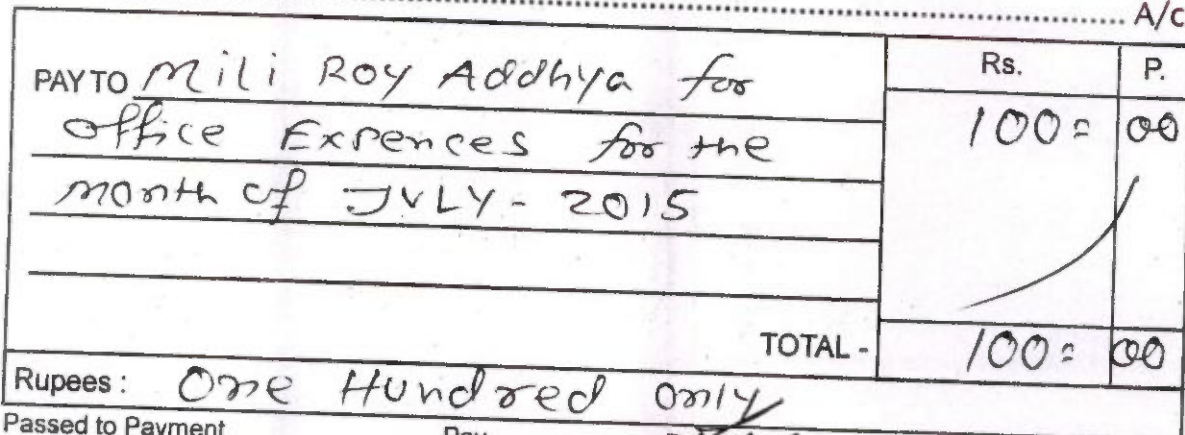 A/c
Rs. P.
PAY TO Mili Roy Addhya for
100 = 00
office Expences for the
month of JULY - 2015
TOTAL - 100 = 00
Rupees : One Hundred only
Passed to Payment Pay